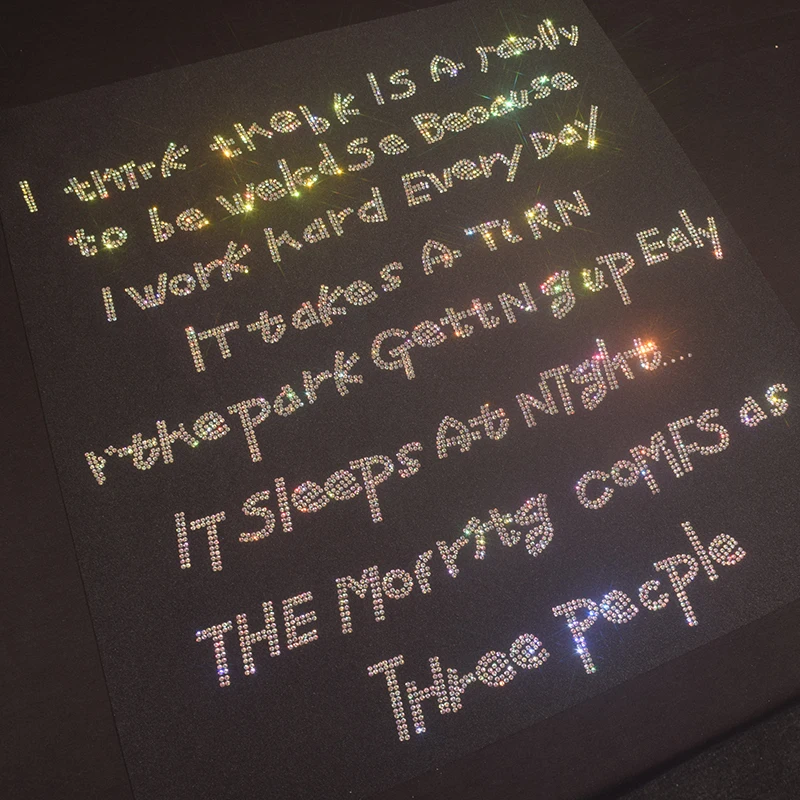 I think thebk IS A rablly
to be welcdse Beocuse
I work hard Every Day
IT takes A TURN
r'the park Gettng up Ealy
IT Sleeps At NIght....
THE Morrtg COMFS as
THree Pecple